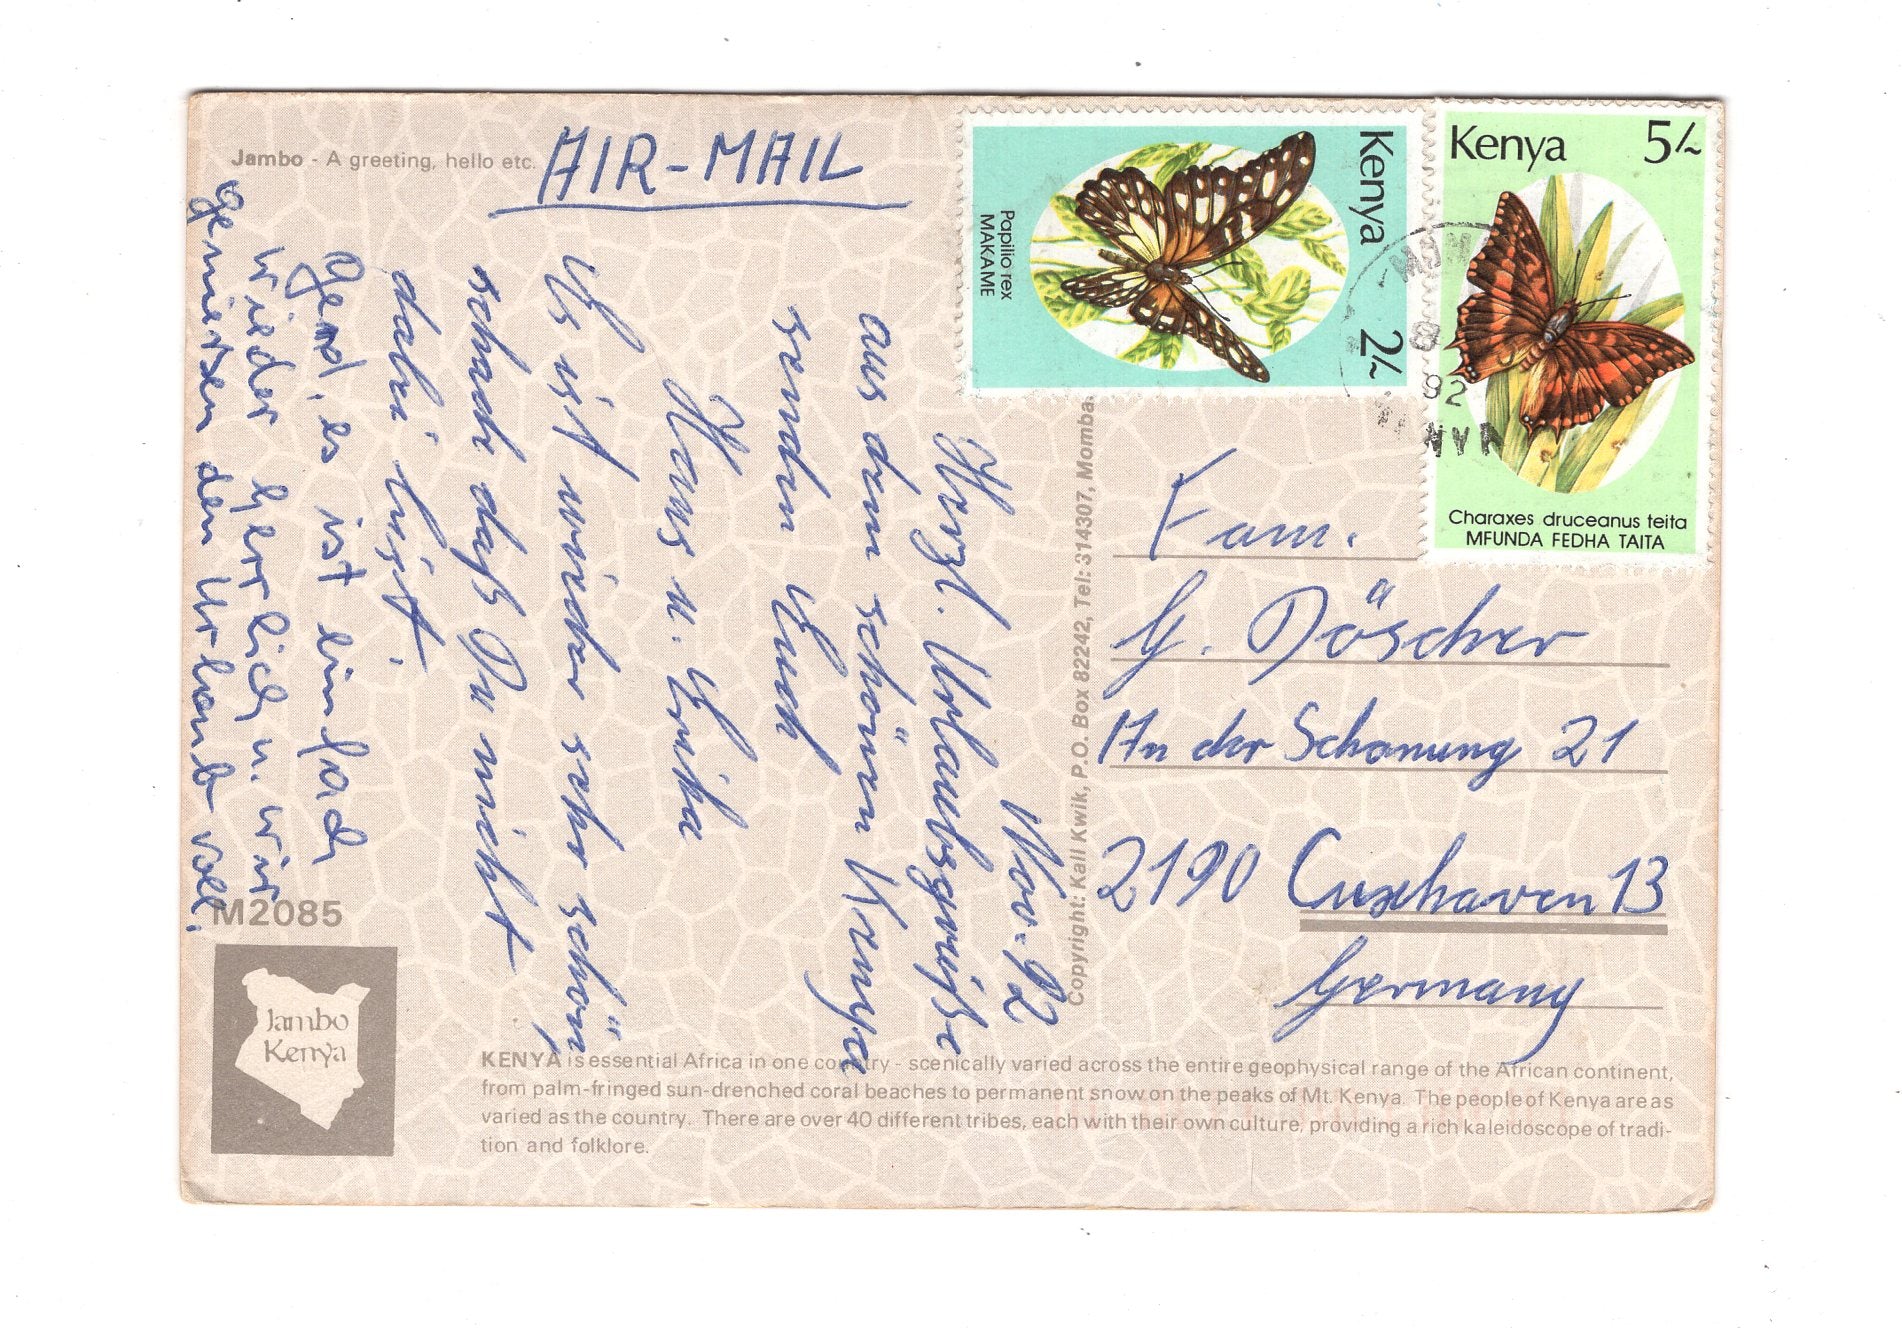 Jambo - A greeting, hello etc.
AIR-MAIL
Kenya
2/-
Papilio rex
MAKAME
Kenya 5/-
Charaxes druceanus teita
MFUNDA FEDHA TAITA
92
Nov. 92
Herzl. Urlaubsgrüße
aus dem schönen Kenya
senden Euch
Hans u. Erika
Es ist wieder sehr schön,
schade daß Du nicht
dabei bist.
Gerd, es ist einfach
wieder herrlich u. wir
genießen den Urlaub voll.
Fam.
G. Döscher
An der Schanung 21
2190 Cuxhaven 13
Germany
Copyright: Kall Kwik, P.O. Box 82242, Tel: 314307, Mombasa
M2085
Jambo
Kenya
KENYA is essential Africa in one country - scenically varied across the entire geophysical range of the African continent,
from palm-fringed sun-drenched coral beaches to permanent snow on the peaks of Mt. Kenya. The people of Kenya are as
varied as the country. There are over 40 different tribes, each with their own culture, providing a rich kaleidoscope of tradi-
tion and folklore.